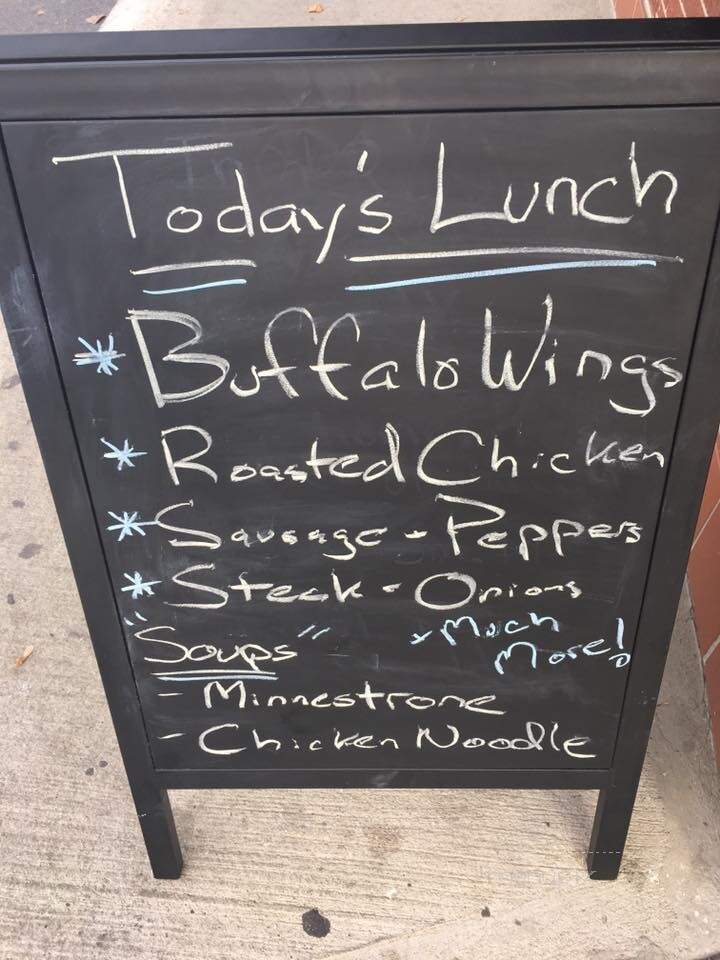 Today's Lunch
* Buffalo Wings
* Roasted Chicken
* Sausage - Peppers
* Steak - Onions
"Soups"
+ Much
More!
- Minnestrone
- Chicken Noodle